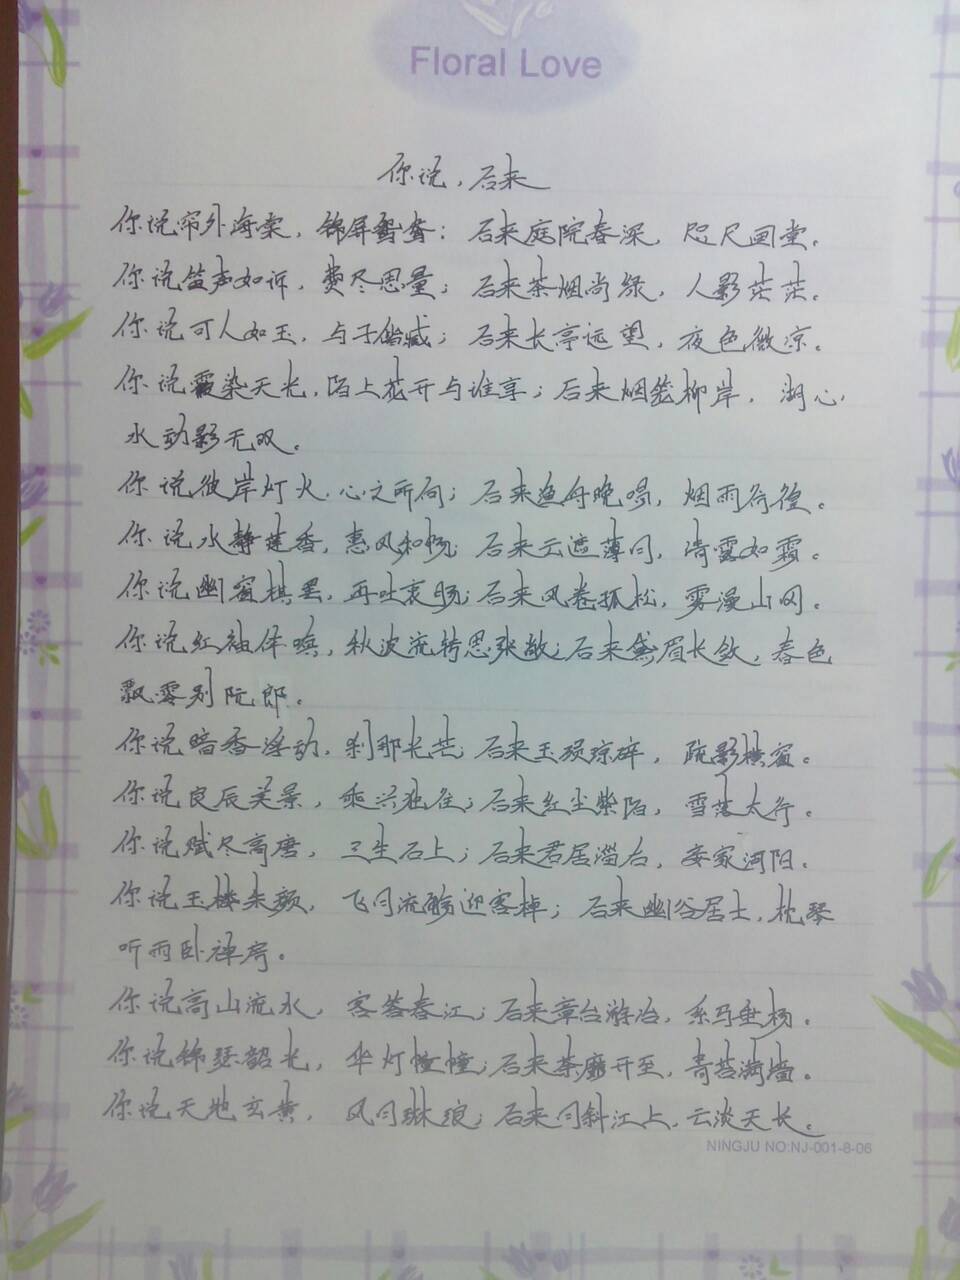 Floral Love
你说，后来
你说帘外海棠，锦屏鸳鸯；后来庭院春深，咫尺画堂。
你说笛声如诉，费尽思量；后来茶烟尚绿，人影茫茫。
你说可人如玉，与子偕臧；后来长亭远望，夜色微凉。
你说霞染天长，陌上花开与谁享；后来烟笼柳岸，湖心
水动影无双。
你说彼岸灯火，心之所向；后来渔舟晚唱，烟雨彷徨。
你说水静莲香，惠风和畅；后来云遮薄月，清露如霜。
你说幽窗棋罢，再吐衷肠；后来风卷孤松，雾漫山冈。
你说红袖佯嗔，秋波流转思张敞；后来黛眉长敛，春色
飘零别阮郎。
你说暗香浮动，刹那长芒；后来玉殒琼碎，疏影横窗。
你说良辰美景，乘兴独往；后来红尘紫陌，雪落太行。
你说赋尽高唐，三生石上；后来君居淄右，妾家河阳。
你说玉楼朱颜，飞月流觞迎客棹；后来幽谷居士，枕琴
听雨卧禅房。
你说高山流水，客答春江；后来章台游冶，系马垂杨。
你说锦瑟韶光，华灯幢幢；后来荼靡开至，青苔满墙。
你说天地玄黄，风月琳琅；后来月斜江上，云淡天长。
NINGJU NO:NJ-001-8-06